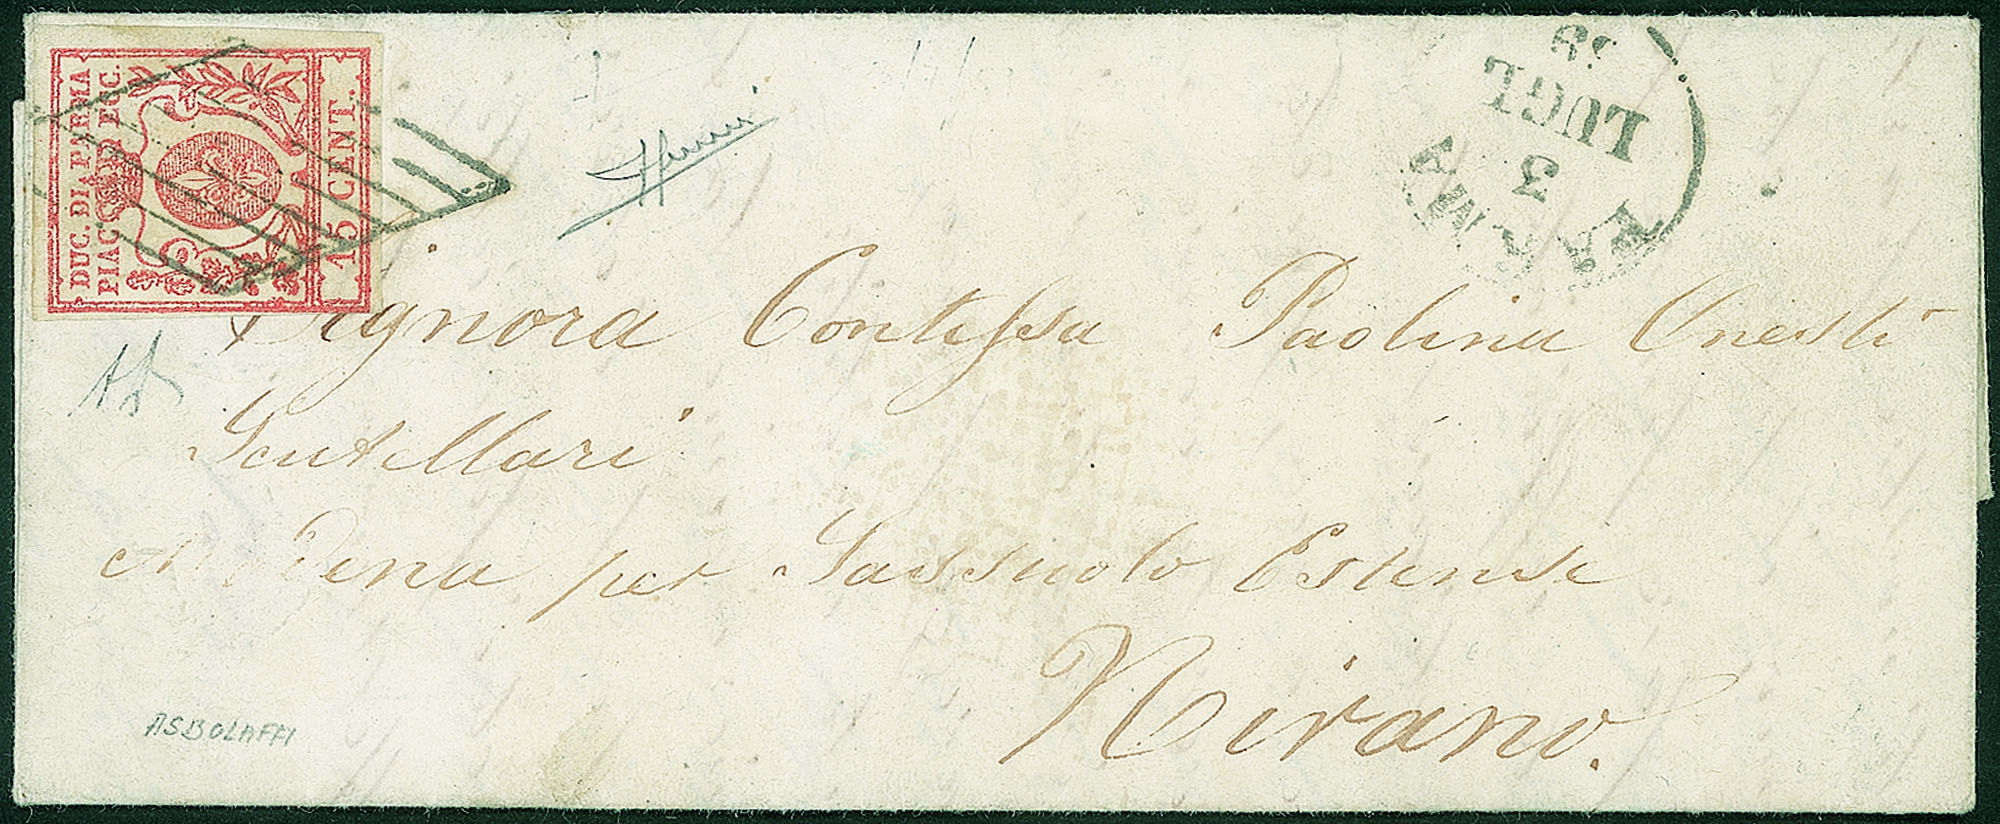 DUC. DI PARMA
PIAC. ECC.
15 CENT.
PARMA
3
LUGL
59
Signora Contessa Paolina Onesti
Scutellari
Modena per Sassuolo Estense
Nirano.
AS
ASBOLAFFI